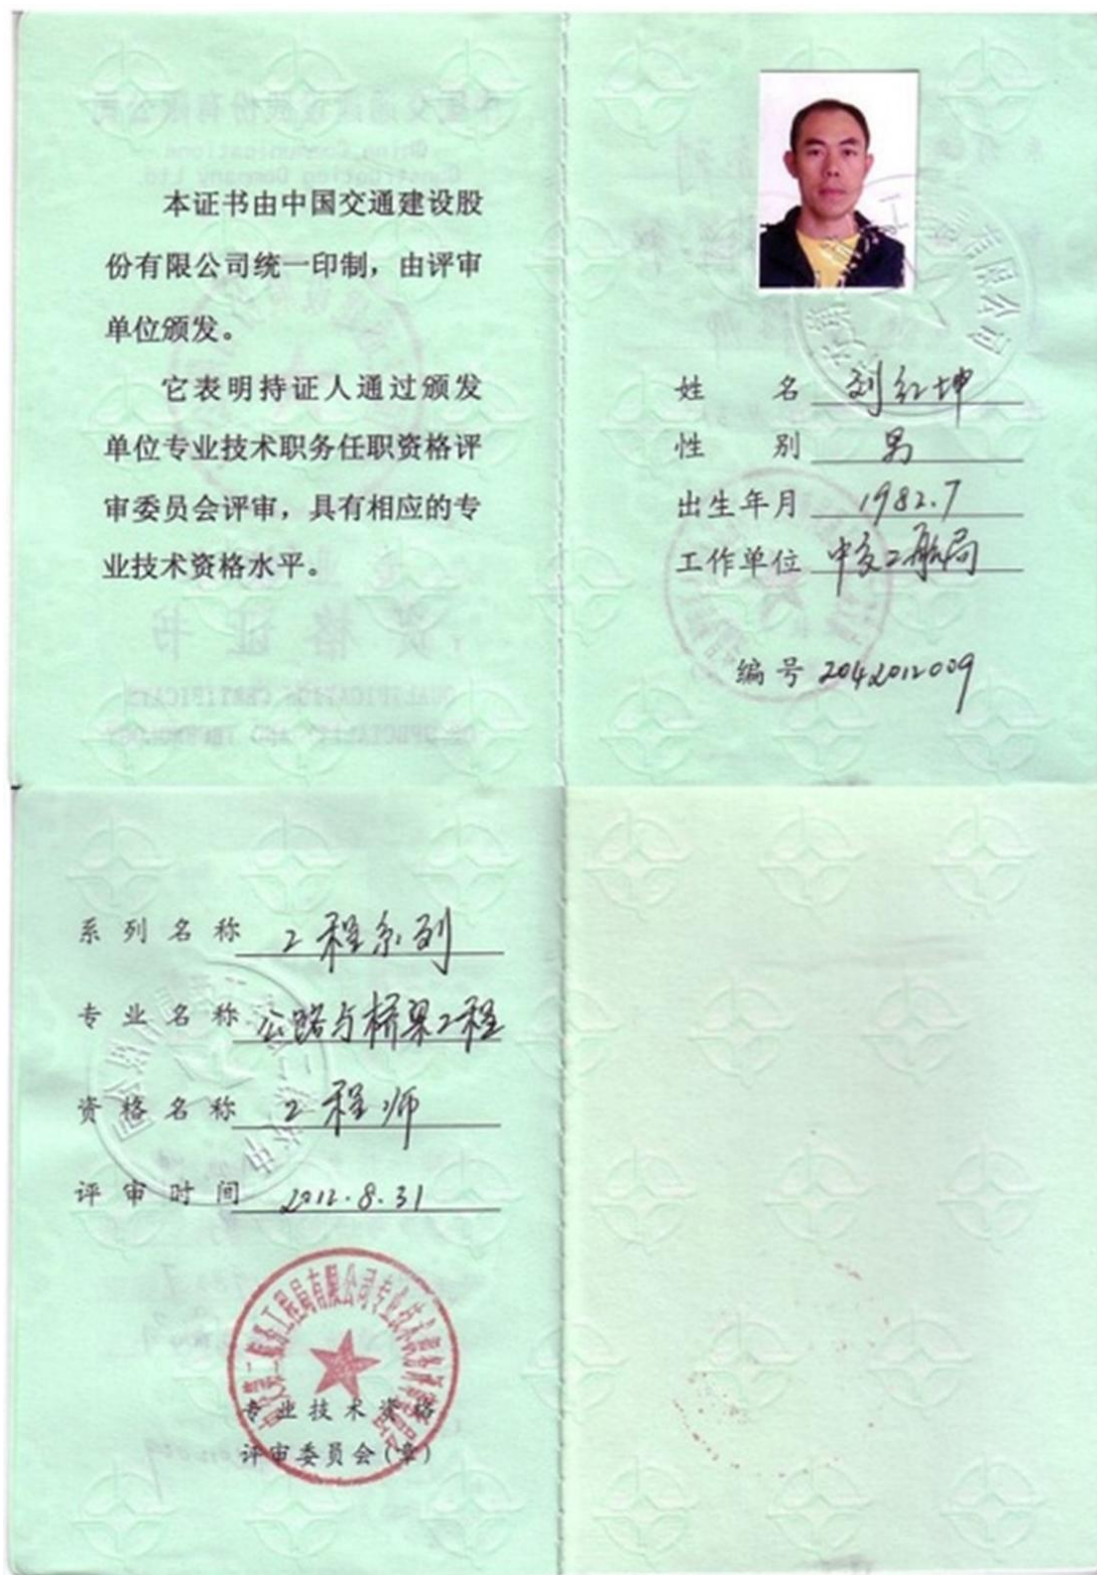 本证书由中国交通建设股
份有限公司统一印制，由评审
单位颁发。
它表明持证人通过颁发
单位专业技术职务任职资格评
审委员会评审，具有相应的专
业技术资格水平。
姓 名 刘红坤
性 别 男
出生年月 1982.7
工作单位 中交二航局
编号 2042012009
系列名称 工程系列
专业名称 公路与桥梁工程
资格名称 工程师
评审时间 2012.8.31
专业技术资格
评审委员会(章)